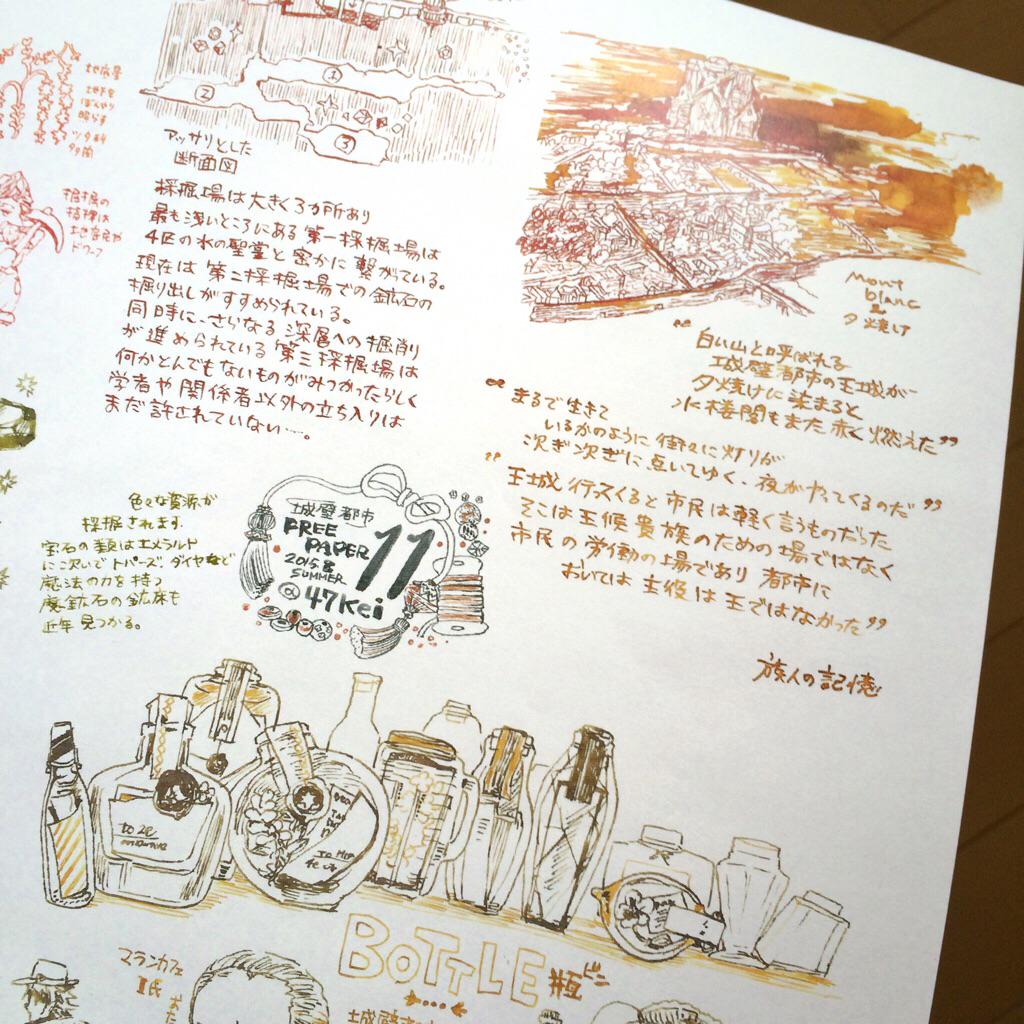 地底星
地下を
ぼんやり
照らす
ツタ科
アッサリとした
断面図
①
②
③
掘掘の
地底民や
ドワーフ
採掘場は大きく3ヵ所あり
最も浅いところにある第一採掘場は
4区の水の聖堂と密かに繋がている。
現在は第二採掘場での鉱石の
掘り出しがすすめられている。
同時に、さらなる深層への掘削
が進められている第三採掘場は
何かとんでもないものがみつかったらしく
学者や関係者以外の立ち入りは
まだ許されていない……。
Mont
blanc
&
夕焼け
"白い山と呼ばれる
城壁都市の王城が
夕焼けに染まると
水楼閣もまた赤く燃えた"
"まるで生きて
いるかのように街々に灯りが
次ぎ次ぎに点いてゆく、夜がやってくるのだ"
"王城に行ってくると市民は軽く言うものだった
そこは王候貴族のための場ではなく
市民の労働の場であり都市に
おいては主役は王ではなかった"
族人の記憶
色々な資源が
採掘されます
宝石の類はエメラルド
に次いでトパーズ、ダイヤなど
魔法の力を持つ
魔鉱石の鉱床も
近年見つかる。
城壁都市
FREE
PAPER
11
2015.8
SUMMER
@47Kei
to ze
BOTTLE 瓶ビン
マランカフェ
氏